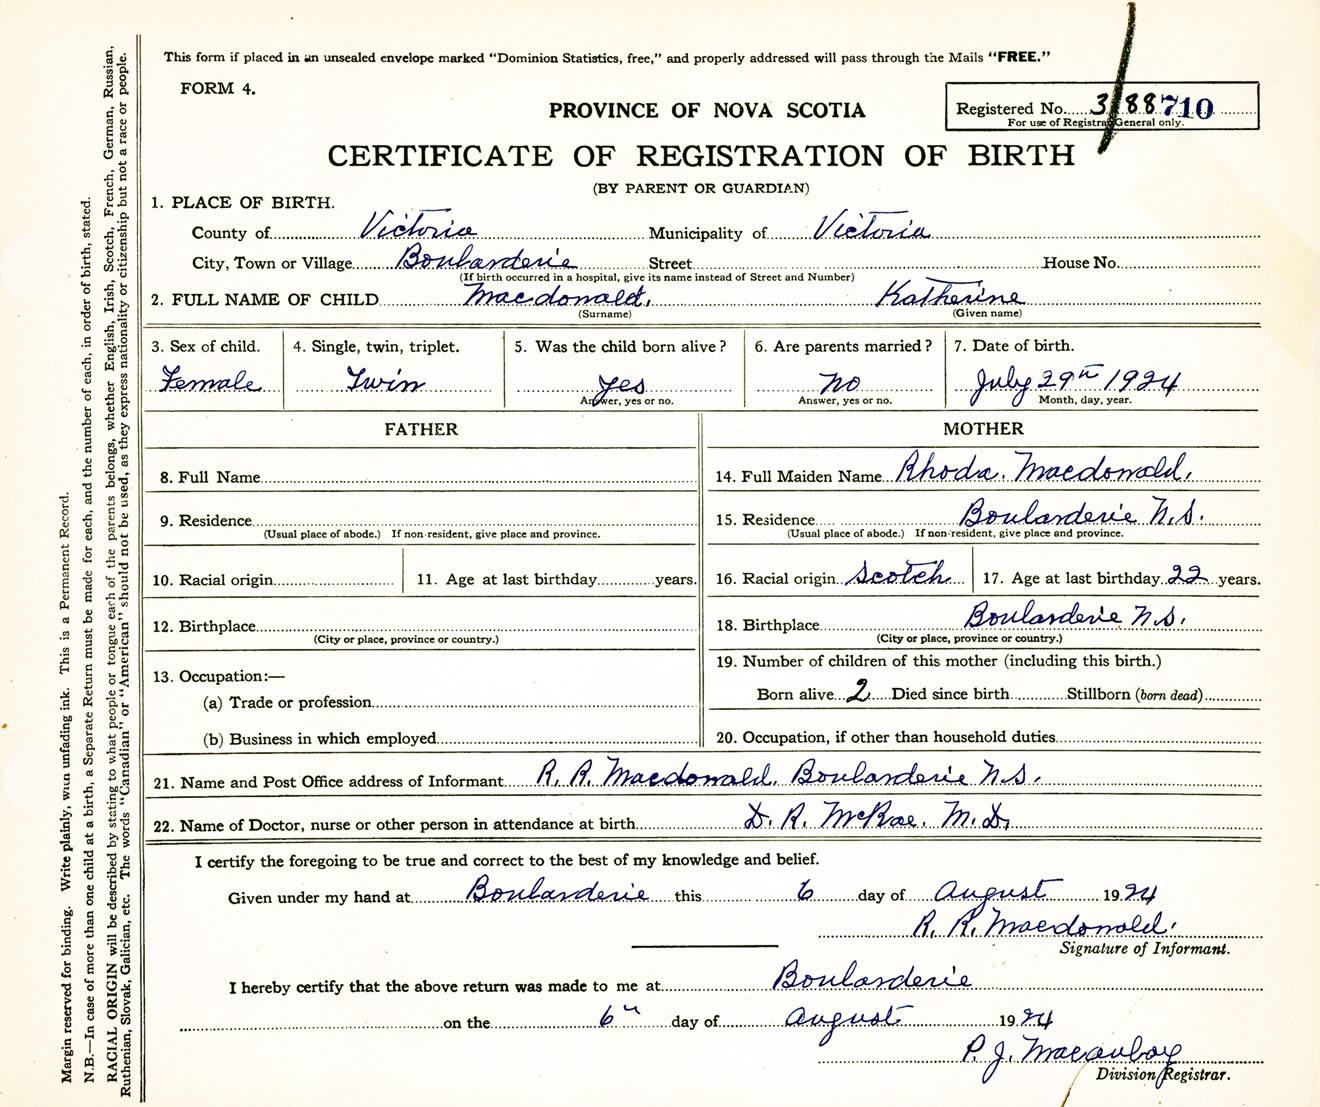 This form if placed in an unsealed envelope marked "Dominion Statistics, free," and properly addressed will pass through the Mails "FREE."
FORM 4.
PROVINCE OF NOVA SCOTIA
Registered No. 3188 710
For use of Registrar General only.
CERTIFICATE OF REGISTRATION OF BIRTH
(BY PARENT OR GUARDIAN)
1. PLACE OF BIRTH.
County of Victoria Municipality of Victoria
City, Town or Village Boularderie Street House No.
(If birth occurred in a hospital, give its name instead of Street and Number)
2. FULL NAME OF CHILD Macdonald, Katherine
(Surname) (Given name)
3. Sex of child. 4. Single, twin, triplet. 5. Was the child born alive? 6. Are parents married? 7. Date of birth.
Female Twin yes no July 29th 1924
Answer, yes or no. Answer, yes or no. Month, day, year.
FATHER MOTHER
8. Full Name 14. Full Maiden Name Rhoda. Macdonald.
9. Residence 15. Residence Boularderie N.S.
(Usual place of abode.) If non-resident, give place and province. (Usual place of abode.) If non-resident, give place and province.
10. Racial origin 11. Age at last birthday years. 16. Racial origin Scotch 17. Age at last birthday 22 years.
12. Birthplace 18. Birthplace Boularderie N.S.
(City or place, province or country.) (City or place, province or country.)
19. Number of children of this mother (including this birth.)
13. Occupation:—
Born alive 2 Died since birth Stillborn (born dead)
(a) Trade or profession
(b) Business in which employed 20. Occupation, if other than household duties
21. Name and Post Office address of Informant R. R. Macdonald. Boularderie N.S.
22. Name of Doctor, nurse or other person in attendance at birth D. R. McRae. M.D,
I certify the foregoing to be true and correct to the best of my knowledge and belief.
Given under my hand at Boularderie this 6 day of August 1924
R. R. Macdonald.
Signature of Informant.
I hereby certify that the above return was made to me at Boularderie
on the 6th day of August 1924
P. J.
Division Registrar.
Margin reserved for binding. Write plainly, with unfading ink. This is a Permanent Record.
N.B.—In case of more than one child at a birth, a Separate Return must be made for each, and the number of each, in order of birth, stated.
RACIAL ORIGIN will be described by stating to what people or tongue each of the parents belongs, whether English, Irish, Scotch, French, German, Russian,
Ruthenian, Slovak, Galician, etc. The words "Canadian" or "American" should not be used, as they express nationality or citizenship but not a race or people.